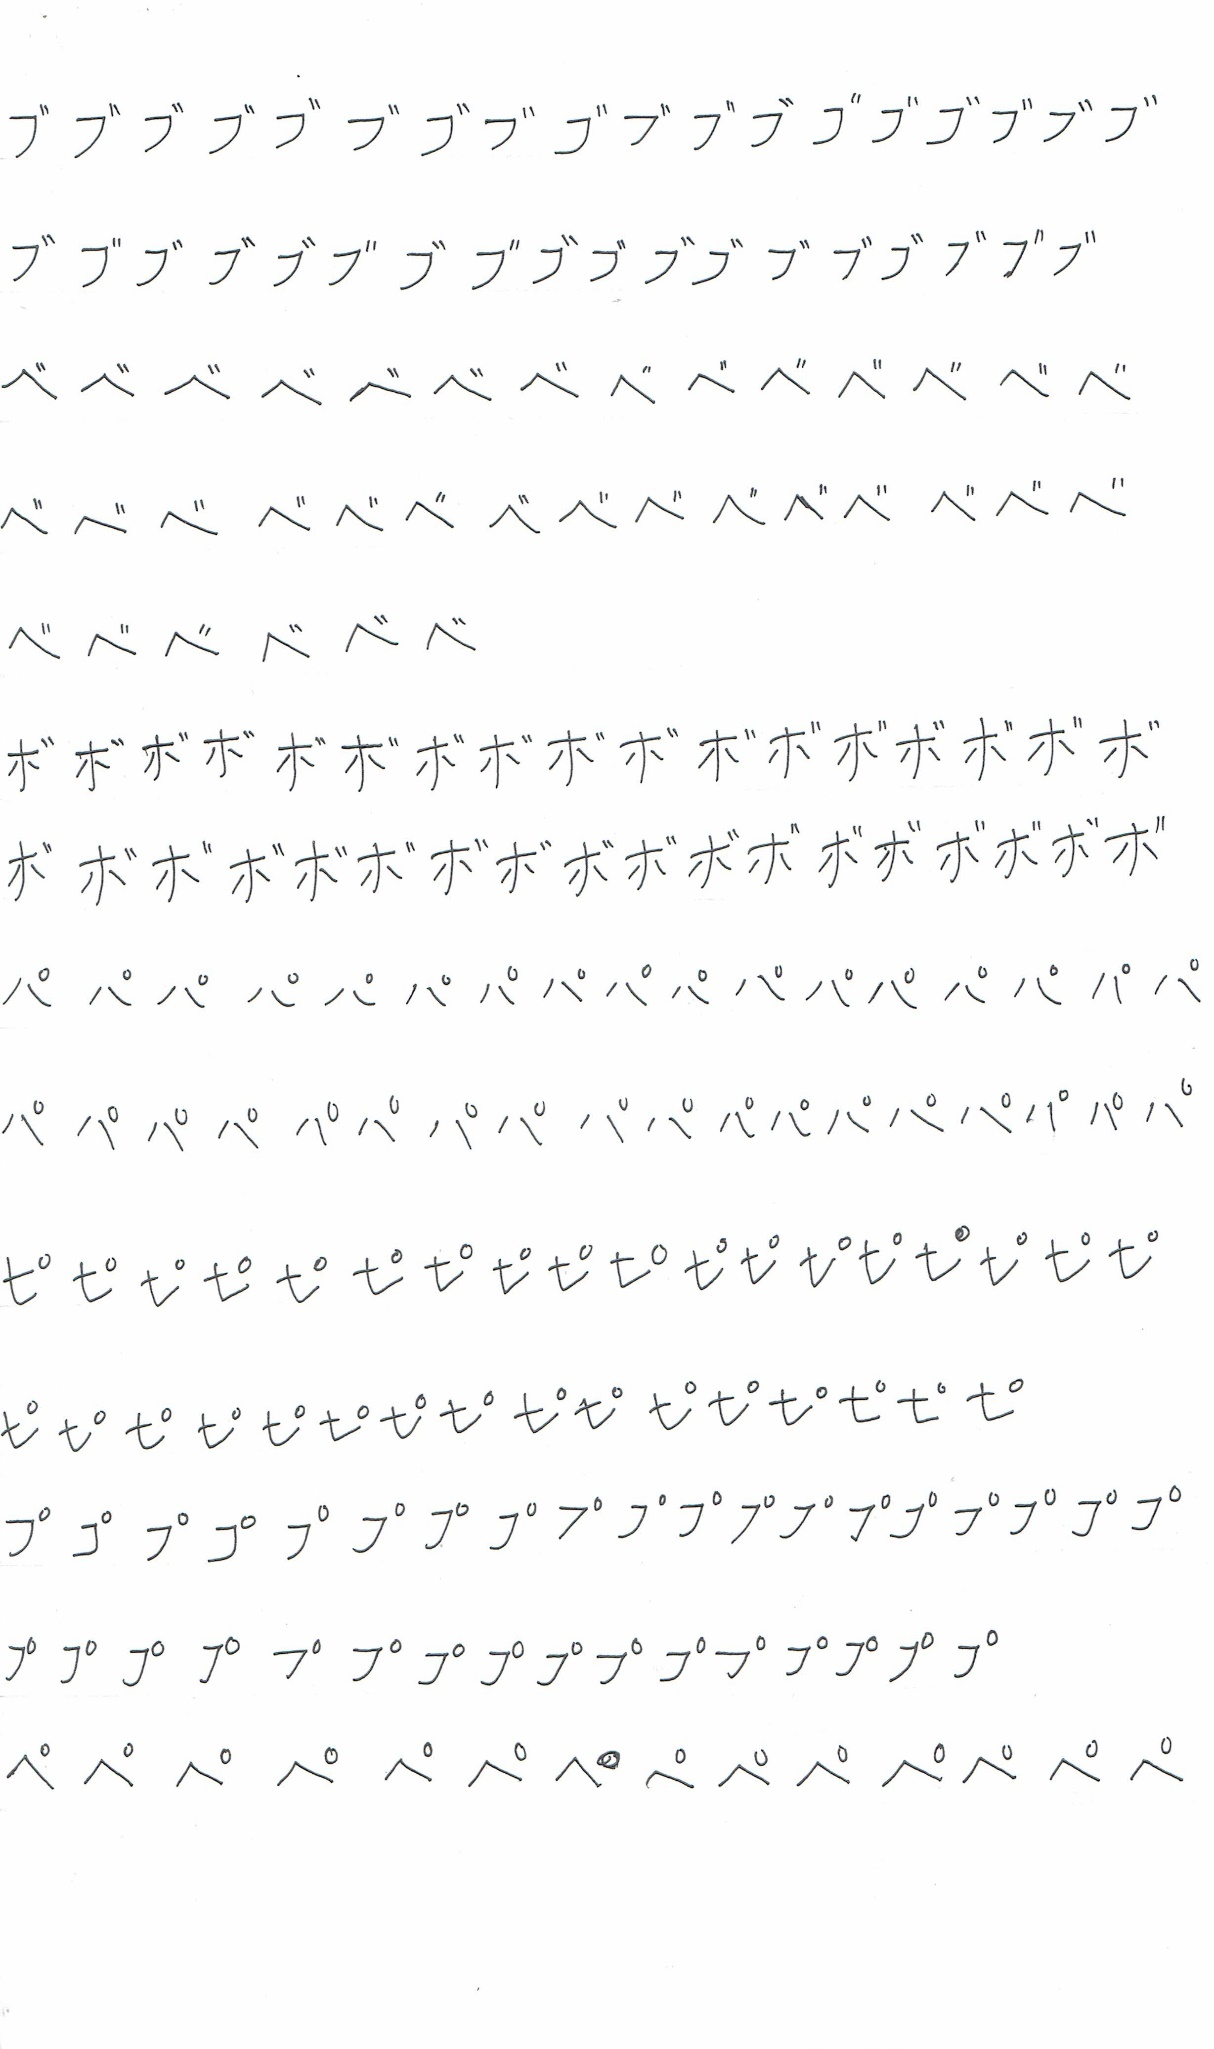 ブブブブブブブブブブブブブブブブブブ
ブブブブブブブブブブブブブブブブブブ
ベベベベベベベベベベベベベベ
ベベベベベベベベベベベベベベベ
ベベベベベベ
ボボボボボボボボボボボボボボボボボ
ボボボボボボボボボボボボボボボボボボ
パパパパパパパパパパパパパパパパパ
パパパパパパパパパパパパパパパパパパ
ピピピピピピピピピピピピピピピピピピ
ピピピピピピピピピピピピピピピピ
ププププププププププププププププププププ
プププププププププププププププ
ペペペペペペペペペペペペペペ